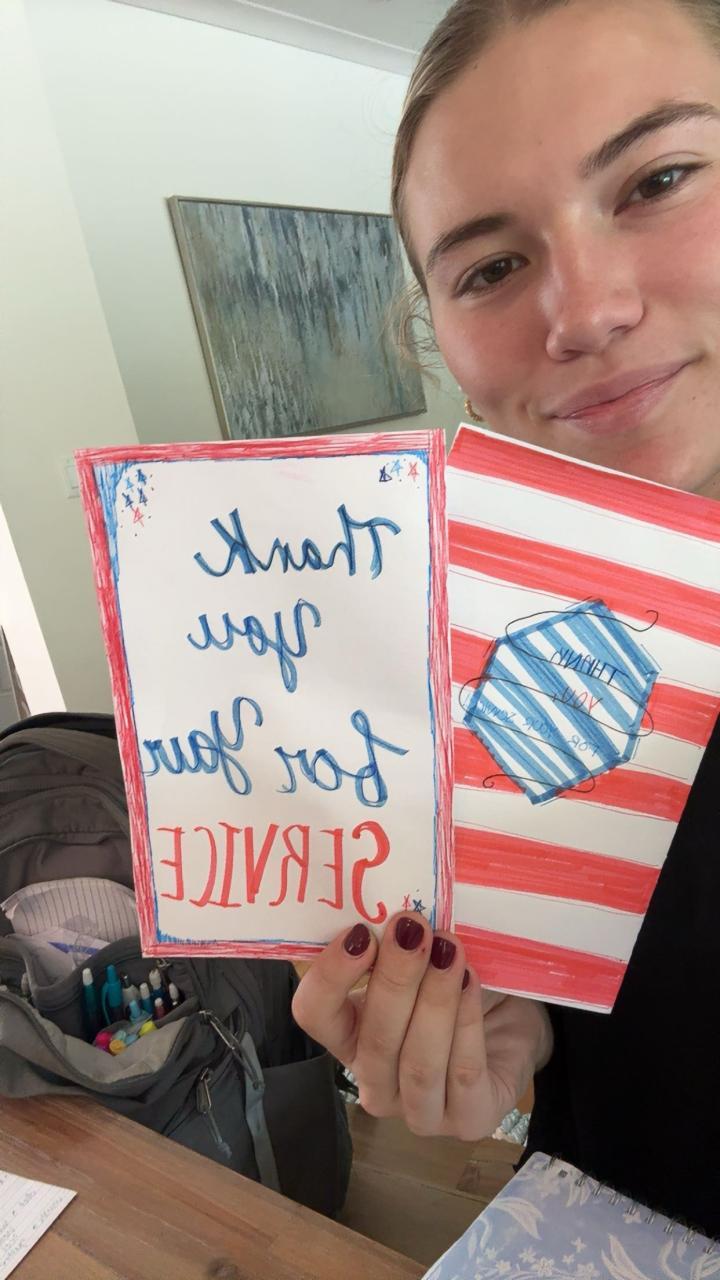 Thank
You
for Your
SERVICE
THANK
YOU,
FOR YOUR SERVICE